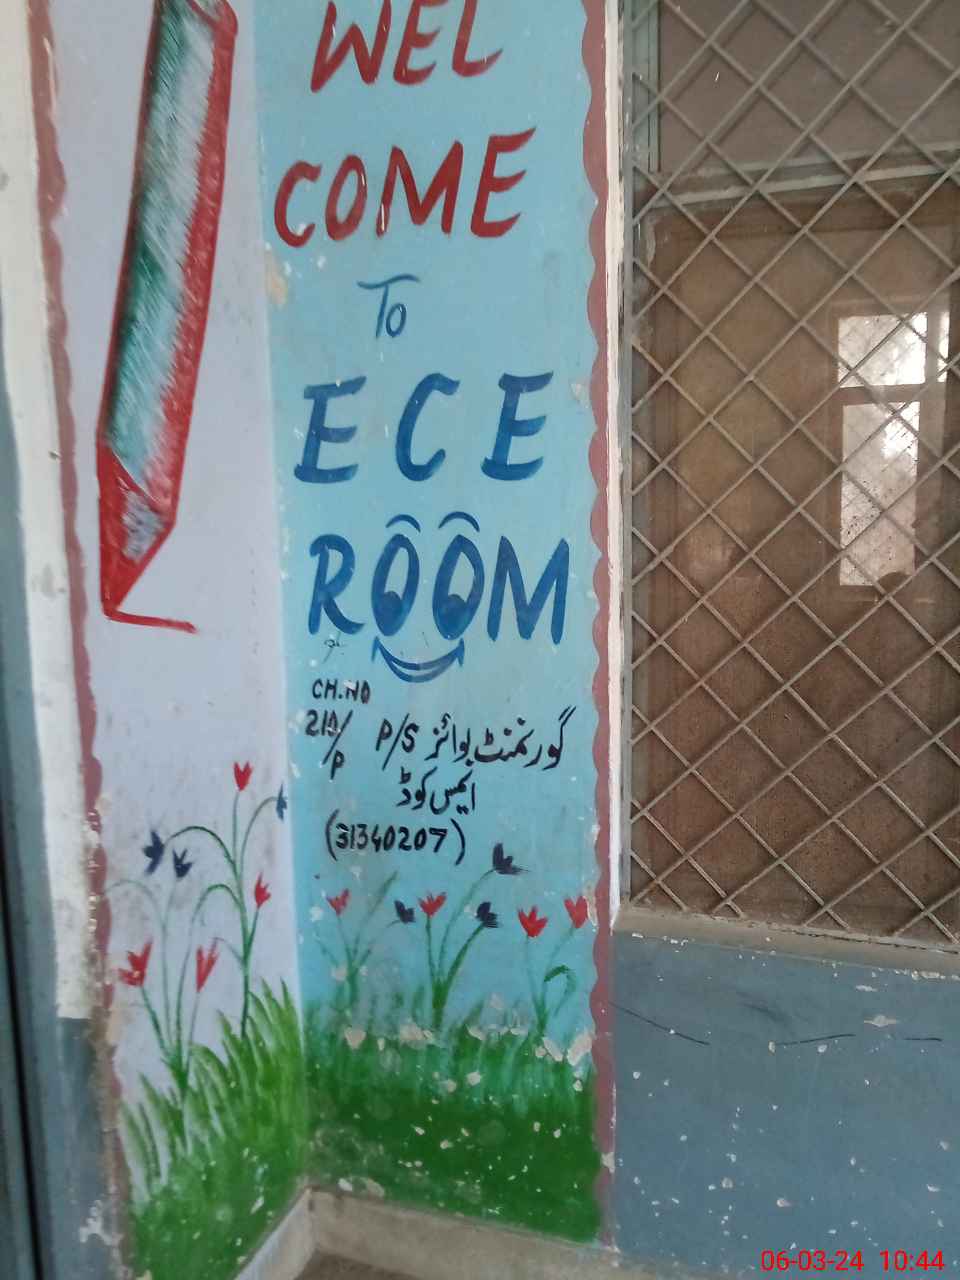 WEL
COME
To
ECE
ROOM
CH.NO
گورنمنٹ بوائز P/S
ایمس کوڈ
(31340207)
06-03-24 10:44